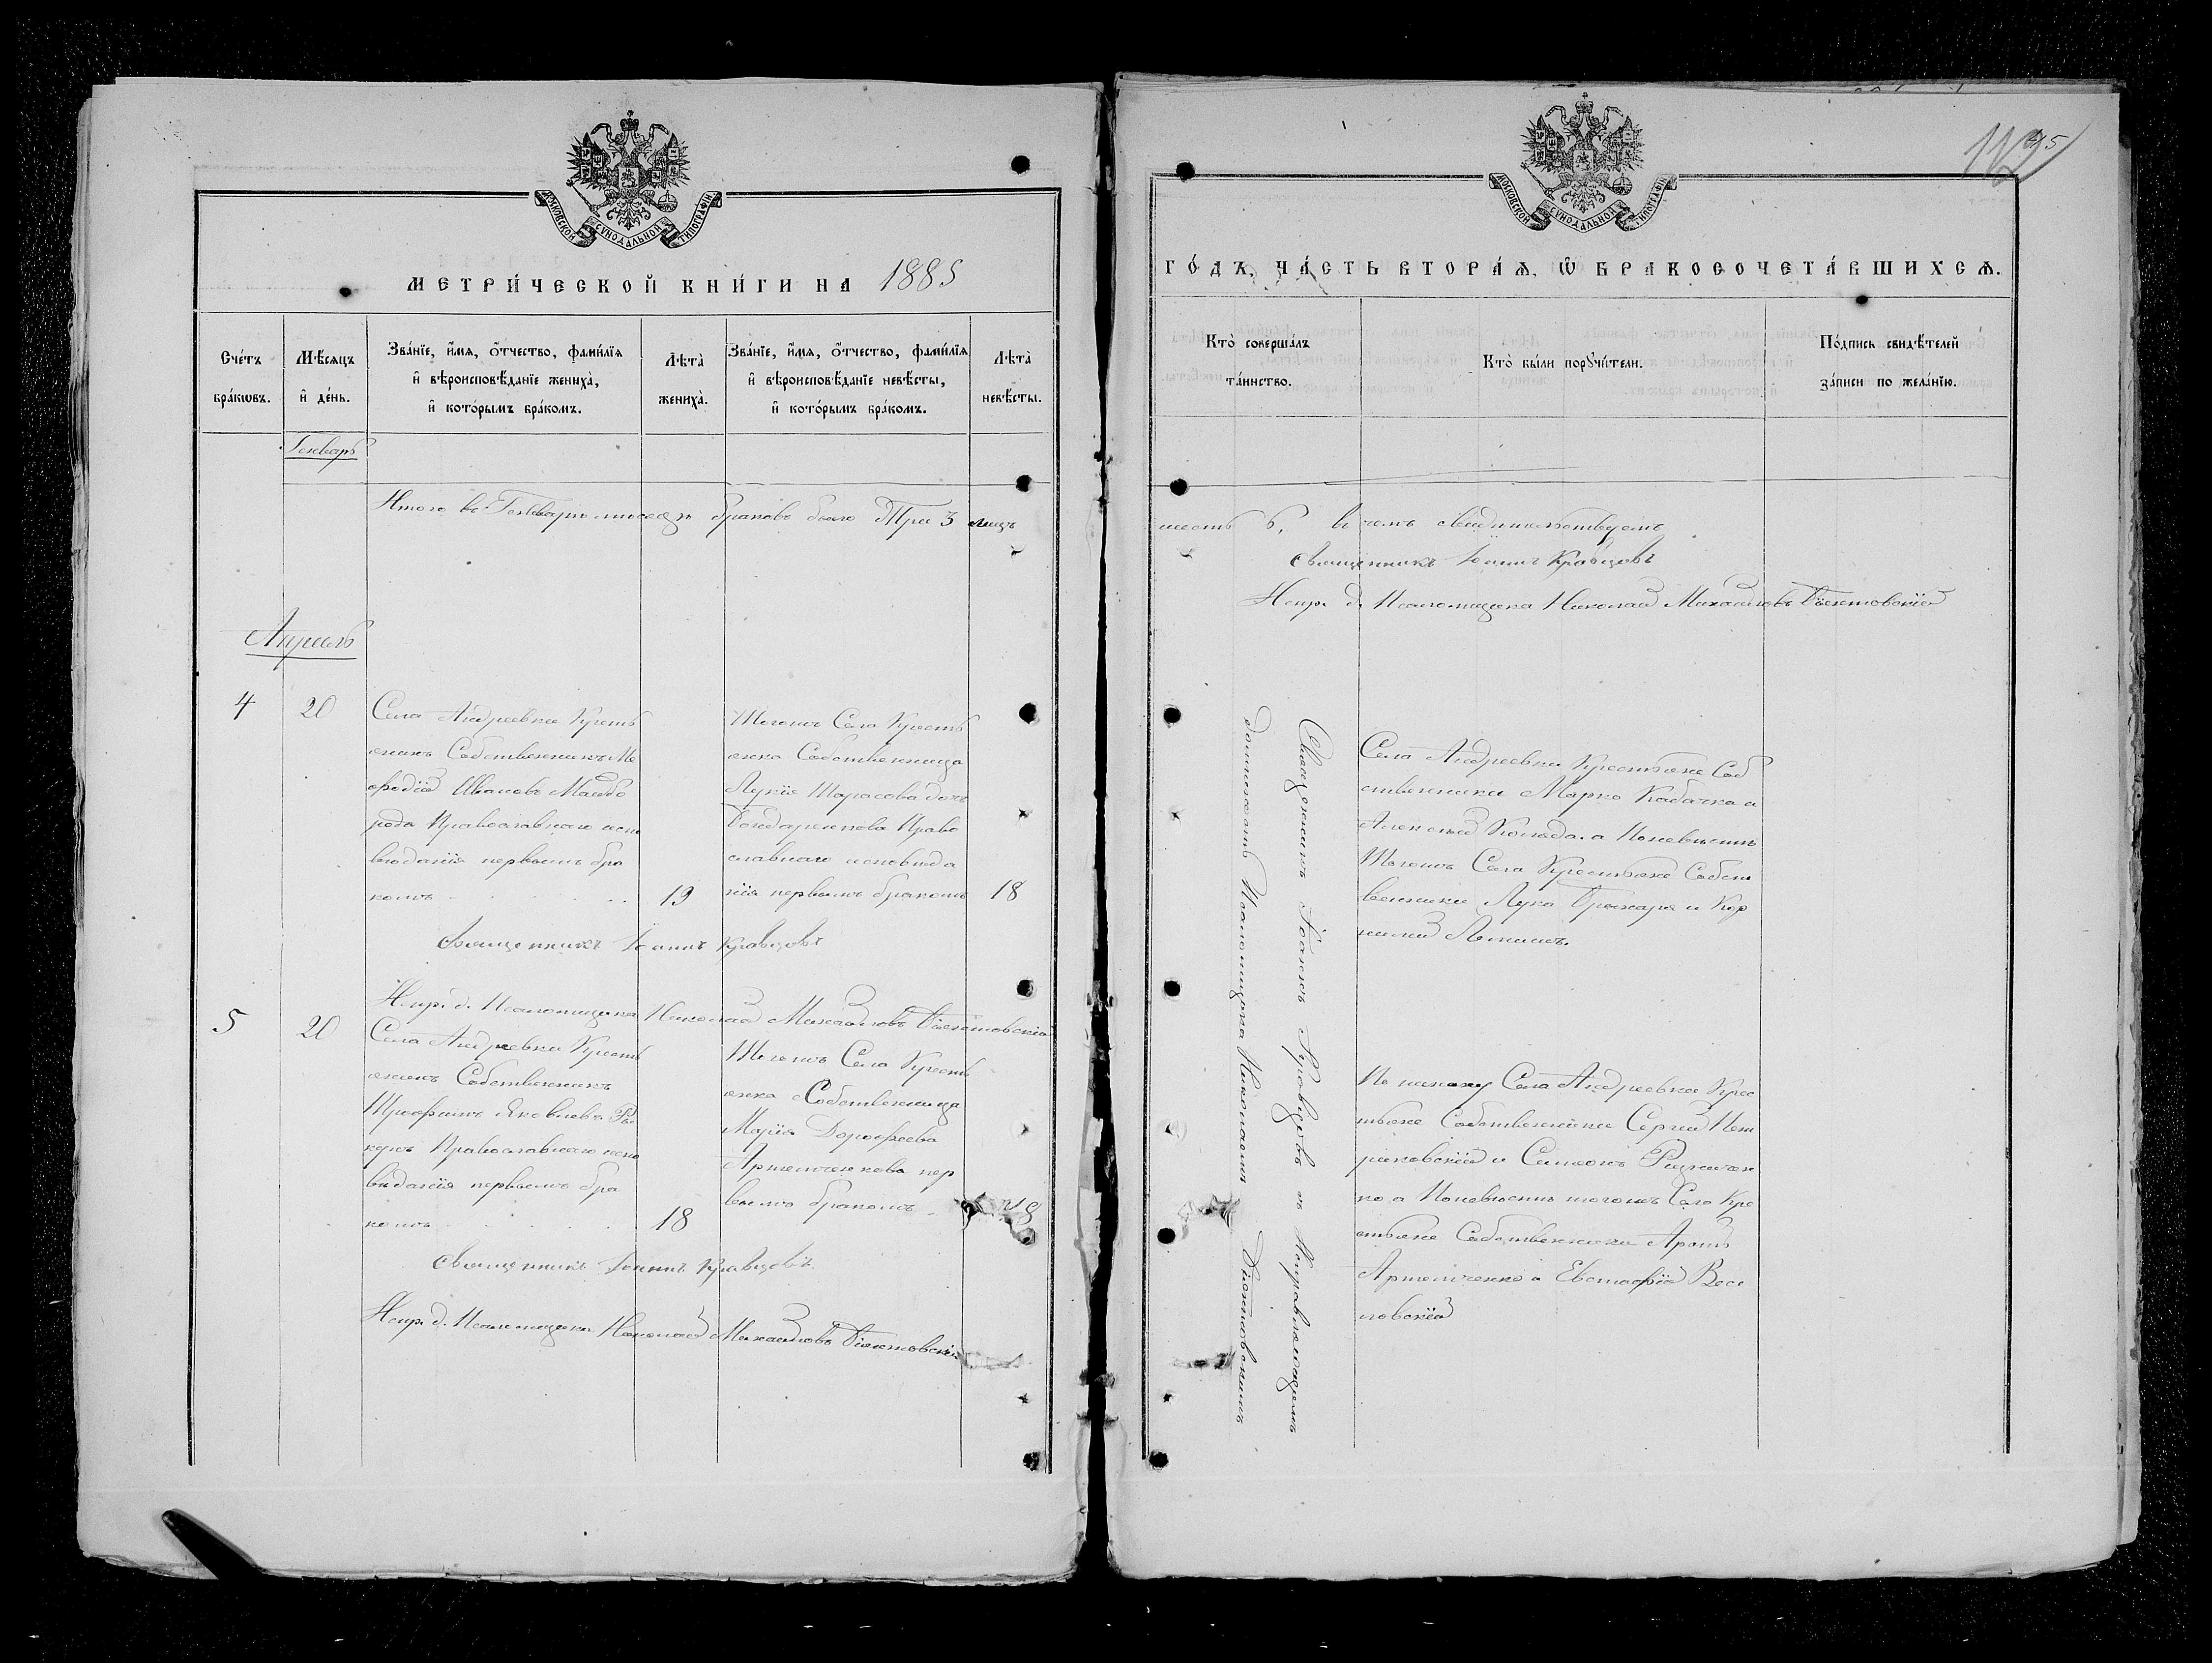 115
МОСКОВСКОЙ СУНОДАЛЬНОЙ ТИПОГРАФІИ
МЕТРИ́ЧЕСКОЙ КНИ́ГИ НА 1885
Сче́тъ бра́кѡвъ.
Мѣ́сяцъ и҆ де́нь.
Зва́нїе, и҆́мя, ѻ҆́тчество, фами́лїя
и҆ вѣроисповѣ́данїе жениха̀,
и҆ кото́рымъ бра́комъ.
Лѣта̀ жениха̀.
Зва́нїе, и҆́мя, ѻ҆́тчество, фами́лїя
и҆ вѣроисповѣ́данїе невѣ́сты,
и҆ кото́рымъ бра́комъ.
Лѣта̀ невѣ́сты.
Генварь
Итого въ Генварѣ мѣсяцѣ браковъ было Три 3 лицъ
Апрель
4
20
Села Андреевки Кресть
янинъ Собственникъ Ме
фодій Ивановъ Майбо
рода Православнаго испо
вѣданія первымъ бра
комъ
19
Тогожъ Села Кресть
янка Собственница
Лукія Тарасова дочь
Бондаренкова Право
славнаго исповѣда
нія первымъ бракомъ
18
Священникъ Іоаннъ Кравцовъ
Испр. д. Псаломщика Николай Михайловъ
5
20
Села Андреевки Кресть
янинъ Собственникъ
Трофимъ Яковлевъ
Православнаго испо
вѣданія первымъ бра
комъ
18
Тогожъ Села Кресть
янка Собственница
Марія Дорофеева
Артемченкова пер
вымъ бракомъ
18
Священникъ Іоаннъ Кравцовъ
Испр. д. Псаломщика Николай Михайловъ
МОСКОВСКОЙ СУНОДАЛЬНОЙ ТИПОГРАФІИ
ГО́ДЪ, ЧА́СТЬ ВТОРА́Ѧ, Ѡ҆ БРАКОСОЧЕТА́ВШИХСѦ.
Кто̀ соверша́лъ
та́инство.
Кто̀ бы́ли порꙋчи́тели.
По́дпись свидѣ́телей
за́писи по жела́нїю.
шесть 6, въ чемъ свидѣтельствуемъ
Священникъ Іоаннъ Кравцовъ
Испр. д. Псаломщика Николай Михайловъ
Священникъ Іоаннъ Кравцовъ съ Исправляющимъ
должность Псаломщика Николаемъ
Села Андреевки Крестьяне Соб
ственники Марко Кабачка и
Алексей Коляда. а Поневѣсти
Тогожъ Села Крестьяне Собст
венники Лука и Кор
нилій
По жениху Села Андреевки Крес
тьяне Собственники Сергей Пет
риковскій и Симеонъ
ко а Поневѣсти тогожъ Села Кре
стьяне Собственники
Артемченко и Евстафій Весе
ловскій